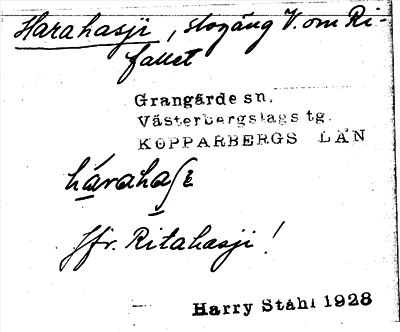 Harahasji, slogäng V. om Ri-
fallet
Grangärde sn,
Västerbergslags tg.
KOPPARBERGS LÄN
háraha
Jfr. Ritahasji!
Harry Ståhl 1928